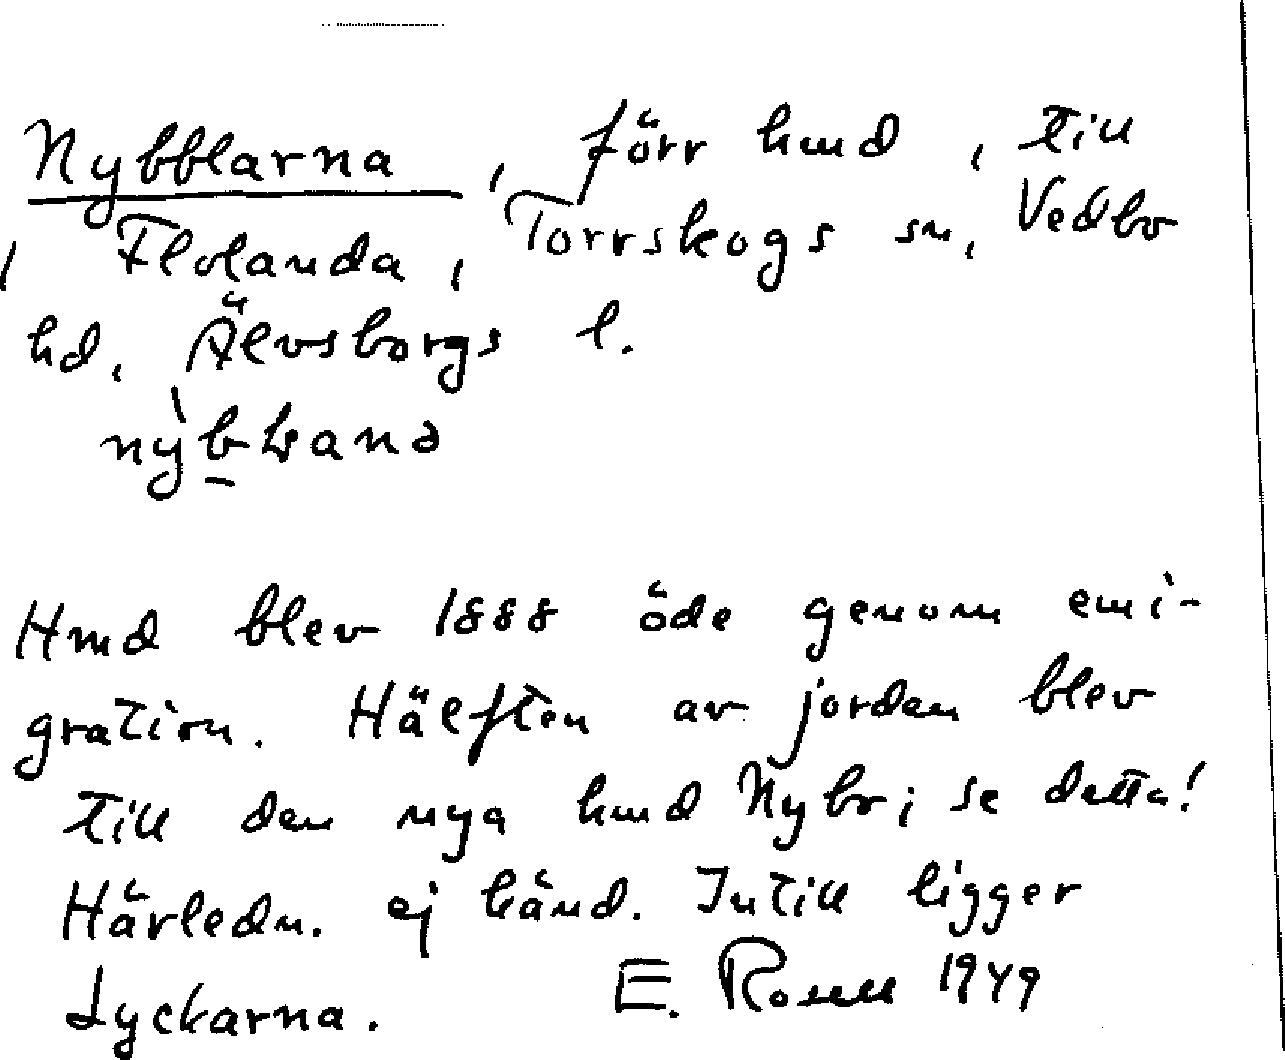 Nybblarna, förr hmd, till
Flolanda, Torrskogs sn, Vedbo
hd, Älvsborgs l.
Hmd blev 1888 öde genom emi-
gration. Hälften av jorden blev
till den nya hmd Nybo; se detta!
Härledn. ej känd. Intill ligger
Lyckarna. E. Rosell 1949